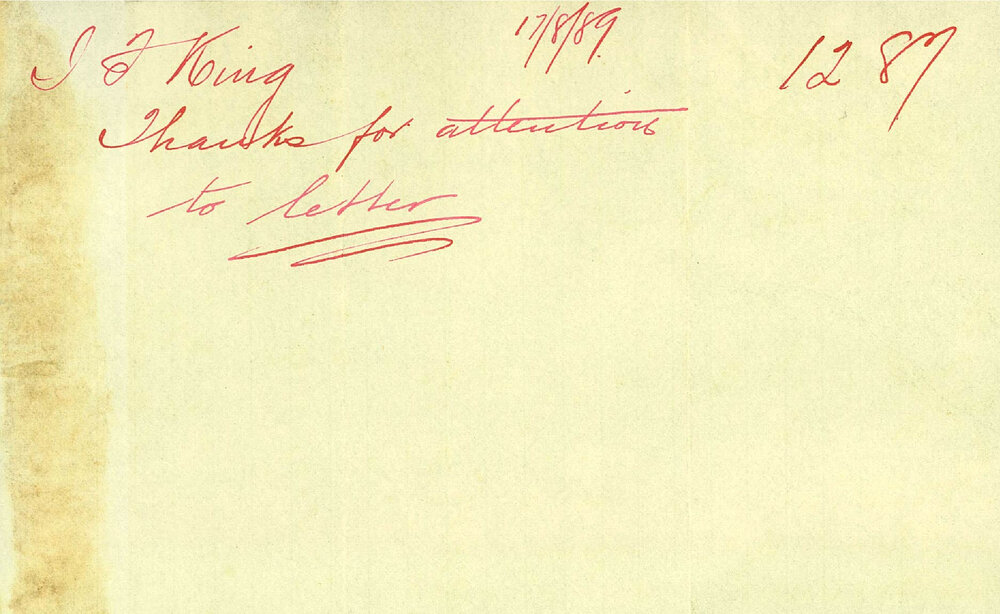 J F King 17/8/89. 1287
Thanks for attention
to letter